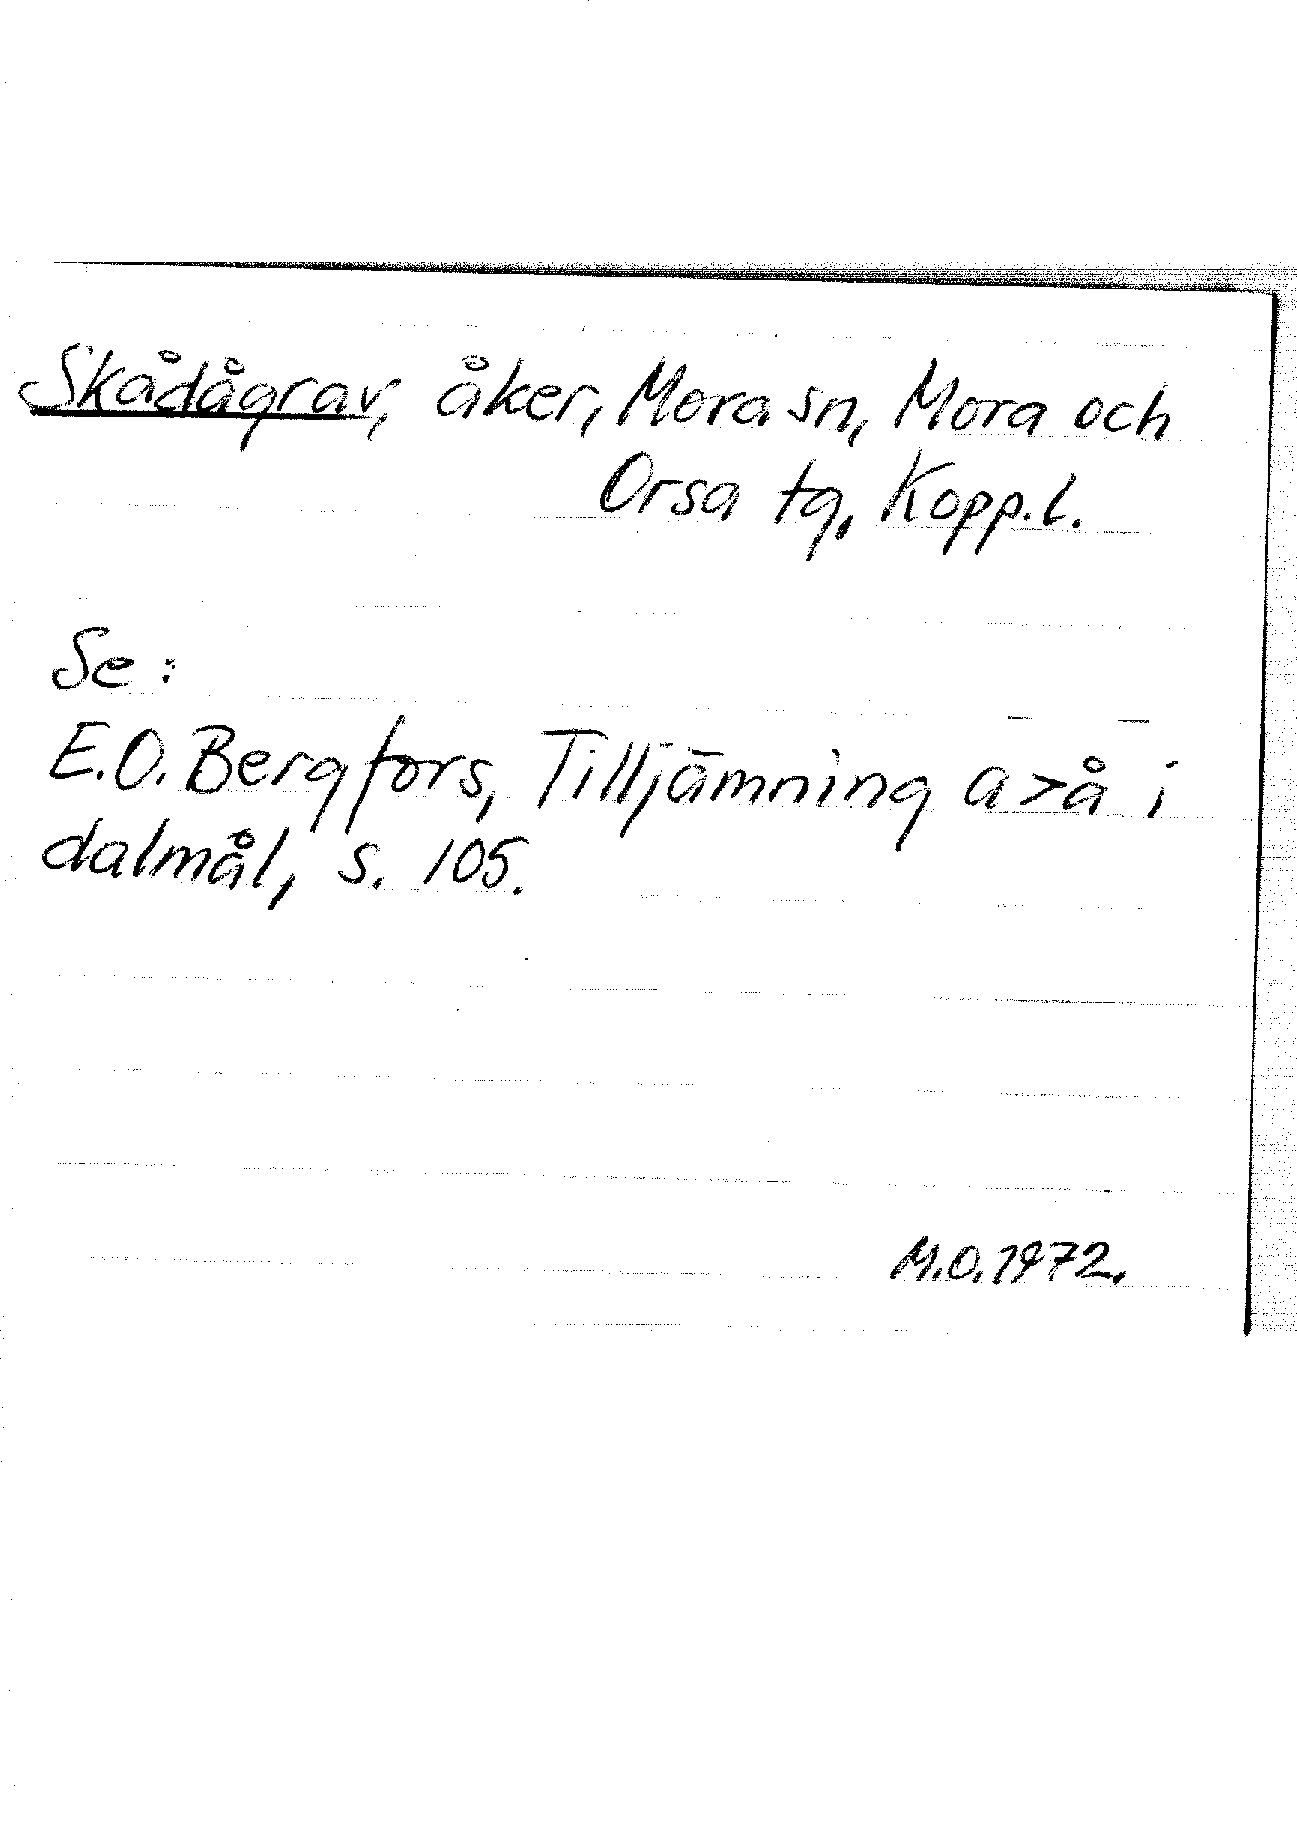 Skådågrav, åker, Mora sn, Mora och
Orsa tg, Kopp.l.
Se:
E.O. Bergfors, Tilljämning a>å i
dalmål, s. 105.
M.O. 1972.